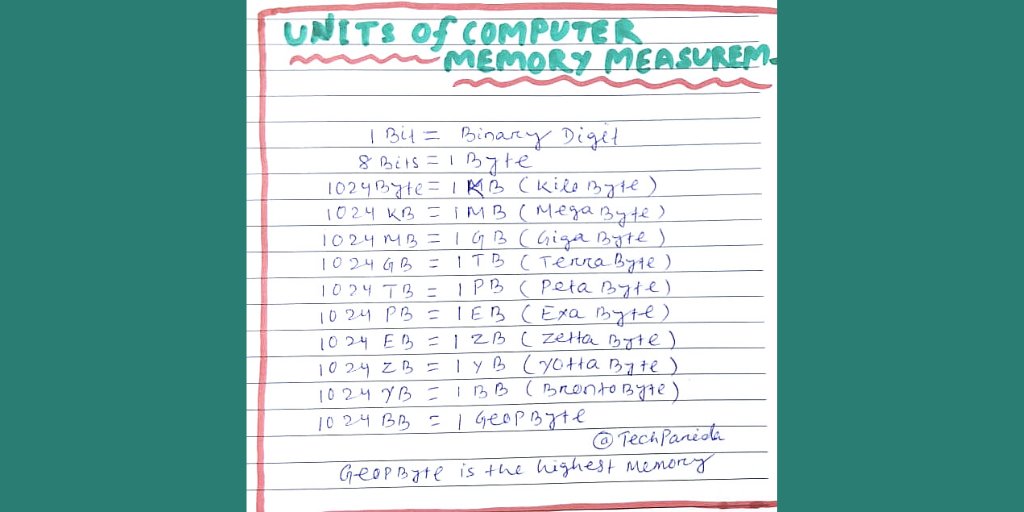 UNITS of COMPUTER
MEMORY MEASUREM
1 Bit = Binary Digit
8 Bits = 1 Byte
1024 Byte = 1 KB (Kilo Byte)
1024 KB = 1 MB (Mega Byte)
1024 MB = 1 GB (Giga Byte)
1024 GB = 1 TB (Terra Byte)
1024 TB = 1 PB (Peta Byte)
1024 PB = 1 EB (Exa Byte)
1024 EB = 1 ZB (Zetta Byte)
1024 ZB = 1 YB (Yotta Byte)
1024 YB = 1 BB (Bronto Byte)
1024 BB = 1 GeopByte
@TechPareda
GeopByte is the highest Memory